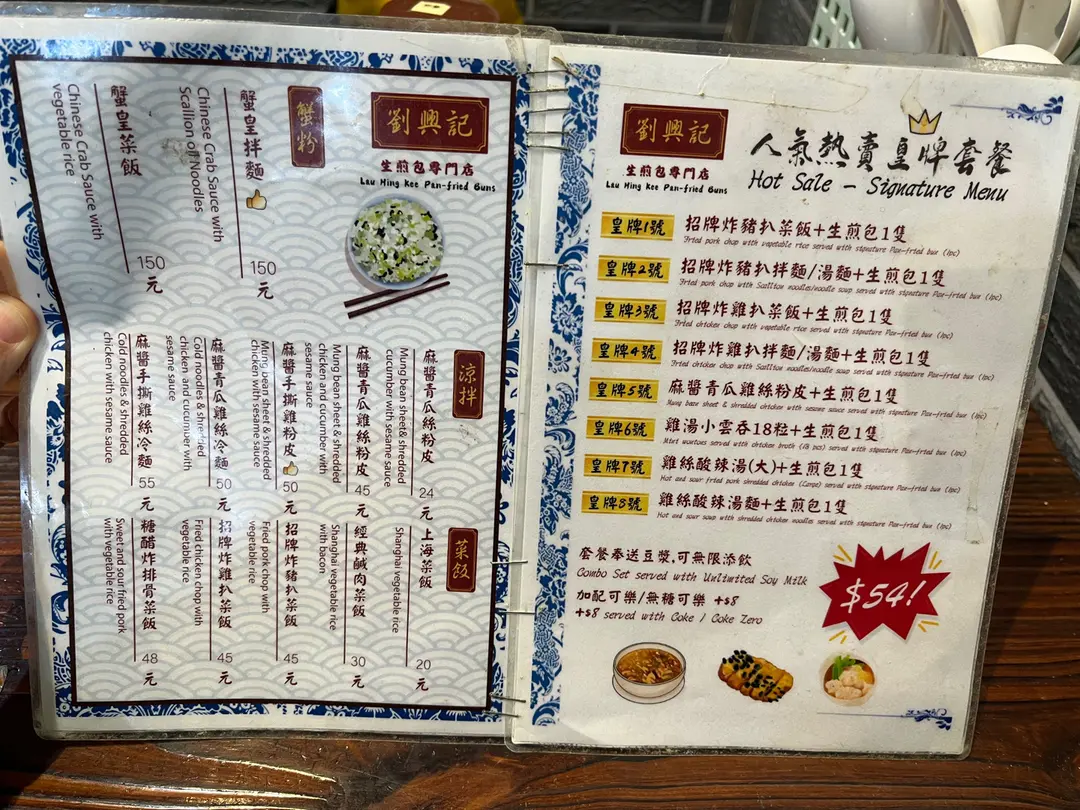 劉興記
生煎包專門店
Lau Hing Kee Pan-fried Buns
蟹粉
蟹皇拌麵
150元
Chinese Crab Sauce with
Scallion oil Noodles
蟹皇菜飯
150元
Chinese Crab Sauce with
vegetable rice
涼拌
麻醬青瓜絲粉皮
24元
Mung bean sheet& shredded
cucumber with sesame sauce
麻醬青瓜雞絲粉皮
45元
Mung bean sheet & shredded
chicken and cucumber with
sesame sauce
麻醬手撕雞粉皮
50元
Mung bean sheet & shredded
chicken with sesame sauce
麻醬青瓜雞絲冷麵
50元
Cold noodles & shredded
chicken and cucumber with
sesame sauce
麻醬手撕雞絲冷麵
55元
Cold noodles & shredded
chicken with sesame sauce
菜飯
上海菜飯
20元
Shanghai vegetable rice
經典鹹肉菜飯
30元
Shanghai vegetable rice
with bacon
招牌炸豬扒菜飯
45元
Fried pork chop with
vegetable rice
招牌炸雞扒菜飯
45元
Fried chicken chop with
vegetable rice
糖醋炸排骨菜飯
48元
Sweet and sour fried pork
with vegetable rice
劉興記
生煎包專門店
Lau Hing Kee Pan-fried Buns
人氣熱賣皇牌套餐
Hot Sale - Signature Menu
皇牌1號 招牌炸豬扒菜飯+生煎包1隻
Fried pork chop with vegetable rice served with signature Pan-fried bun (1pc)
皇牌2號 招牌炸豬扒拌麵/湯麵+生煎包1隻
Fried pork chop with Scallion noodles/noodle soup served with signature Pan-fried bun (1pc)
皇牌3號 招牌炸雞扒菜飯+生煎包1隻
Fried chicken chop with vegetable rice served with signature Pan-fried bun (1pc)
皇牌4號 招牌炸雞扒拌麵/湯麵+生煎包1隻
Fried chicken chop with Scallion noodles/noodle soup served with signature Pan-fried bun (1pc)
皇牌5號 麻醬青瓜雞絲粉皮+生煎包1隻
Mung bean sheet & shredded chicken with sesame sauce served with signature Pan-fried bun (1pc)
皇牌6號 雞湯小雲吞18粒+生煎包1隻
Mini wontons served with chicken broth (18 pcs) served with signature Pan-fried bun (1pc)
皇牌7號 雞絲酸辣湯(大)+生煎包1隻
Hot and sour fried pork shredded chicken (Large) served with signature Pan-fried bun (1pc)
皇牌8號 雞絲酸辣湯麵+生煎包1隻
Hot and sour soup with shredded chicken noodles served with signature Pan-fried bun (1pc)
套餐奉送豆漿,可無限添飲
Combo Set served with Unlimited Soy Milk
加配可樂/無糖可樂 +$8
+$8 served with Coke / Coke Zero
$54!